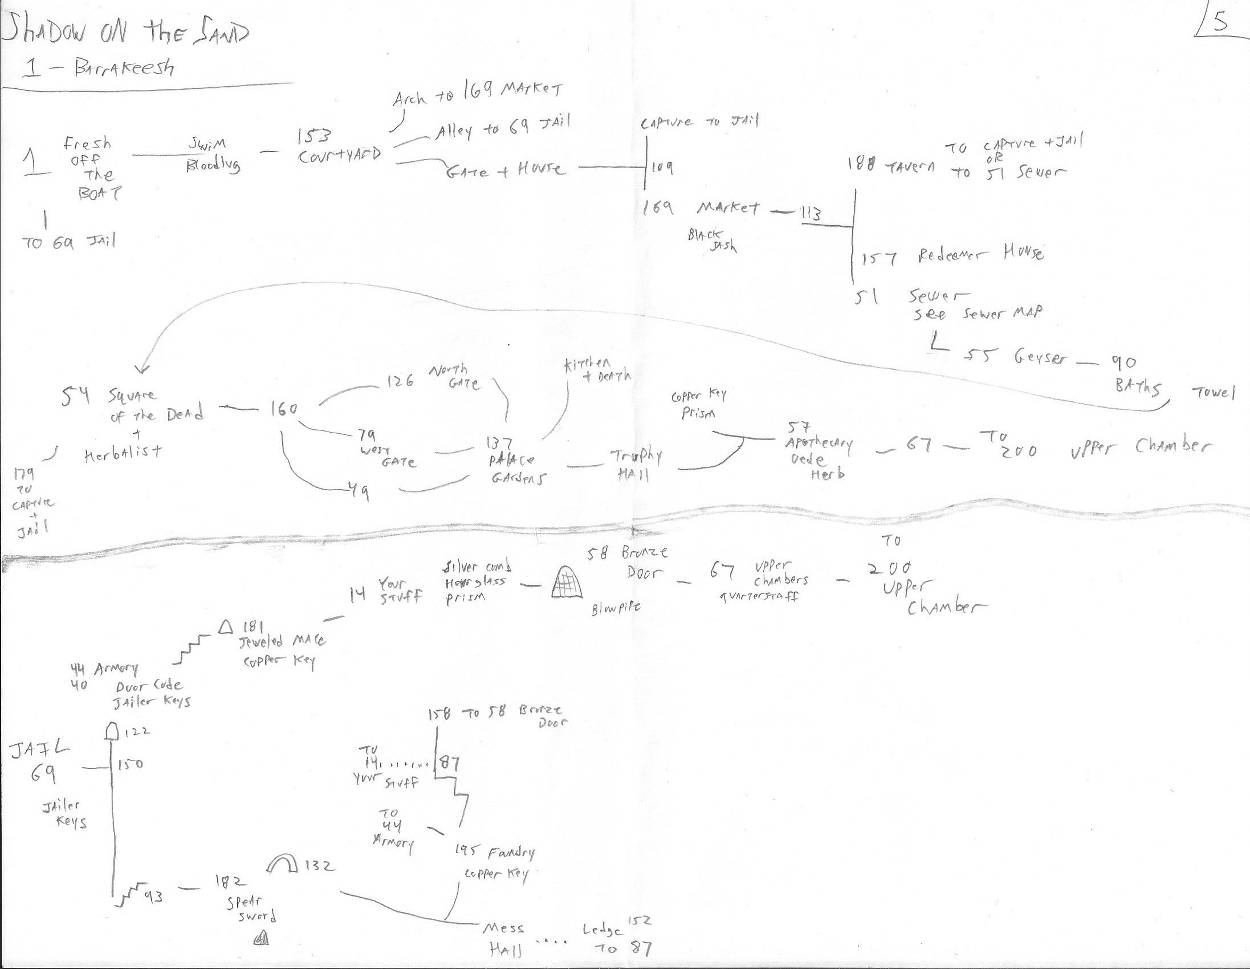 SHADOW ON THE SAND
5
1 - BARRAKEESH
1
Fresh
OFF
THE
BOAT
TO 69 JAIL
SWIM
Bloodlug
153
COURTYARD
Arch to 169 MARKET
Alley to 69 JAIL
GATE + HOUSE
CAPTURE TO JAIL
109
169 MARKET
BLACK
SASH
113
188 TAVERN
TO CAPTURE + JAIL
OR
TO 51 Sewer
157 Redeemer House
51 Sewer
See Sewer MAP
55 Geyser
90
BATHS
Towel
54 Square
of the Dead
+
Herbalist
179
TO
CAPTURE
+
JAIL
160
126 North
GATE
79
West
GATE
49
137
PALACE
GARDENS
Kitchen
+ DEATH
Trophy
HALL
Copper Key
Prism
57
Apothecary
Oede
Herb
67
TO
200 UPPER CHAMBER
44 Armory
40 Door Code
JAiler Keys
181
Jeweled MACE
Copper Key
14 Your
Stuff
Silver comb
Hourglass
Prism
58 Bronze
Door
Blowpipe
67 Upper
Chambers
Quarterstaff
TO
200
Upper
CHAMBER
JAIL
69
JAiler
Keys
122
150
93
182
Spear
Sword
132
158 TO 58 Bronze
Door
TO
14
Your Stuff
87
TO
44
Armory
195 Foundry
Copper Key
Mess
HALL
Ledge 152
TO 87